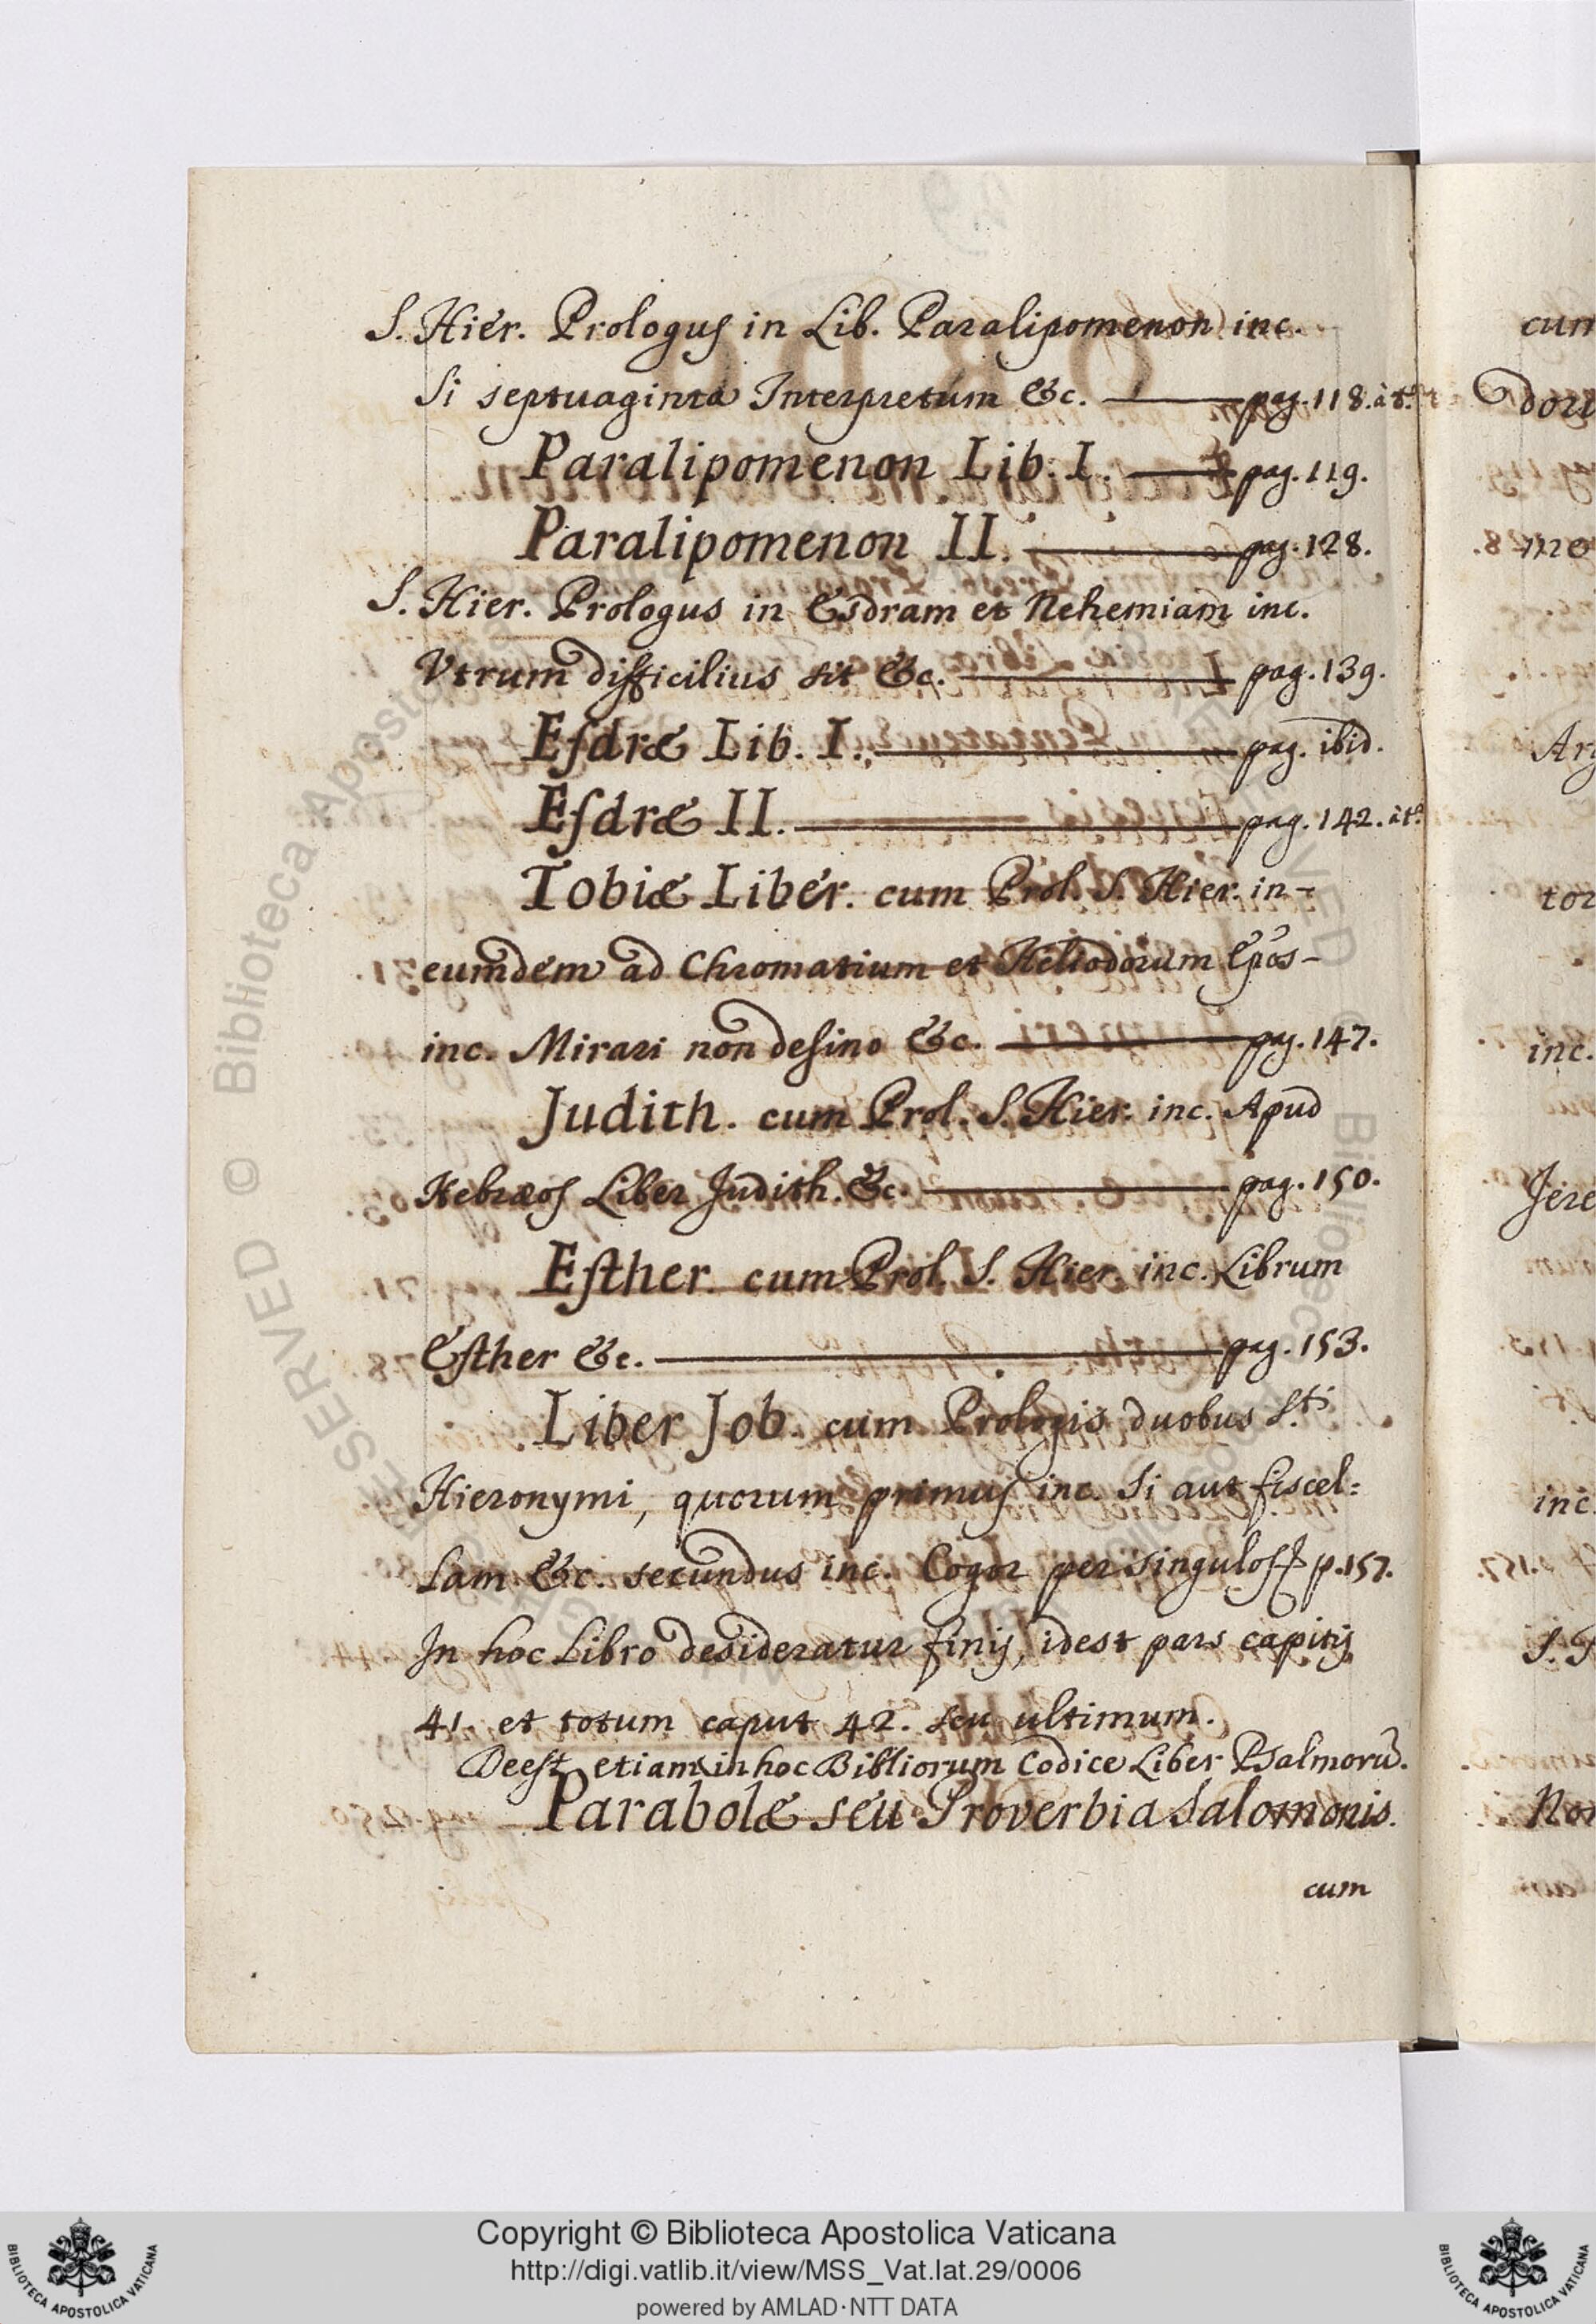 S. Hier. Prologus in Lib. Paralipomenon inc.
Si septuaginta Interpretum &c. — pag. 118. à t.º
Paralipomenon Lib. I. — pag. 119.
Paralipomenon II. — pag. 128.
S. Hier. Prologus in Esdram et Nehemiam inc.
Vtrum difficilius sit &c. — pag. 139.
Eſdræ Lib. I. — pag. ibid.
Eſdræ II. — pag. 142. à t.º
Tobiæ Liber. cum Prol. S. Hier. in-
eumdem ad Chromatium et Heliodorum Ep̃os-
inc. Mirari non deſino &c. — pag. 147.
Judith. cum Prol. S. Hier. inc. Apud
Hebræos Liber Judith. &c. — pag. 150.
Eſther. cum Prol. S. Hier. inc. Librum
Eſther &c. — pag. 153.
Liber Job. cum Prologis duobus S.ti
Hieronymi, quorum primus inc. Si aut fiscel=
lam &c. secundus inc. Cogor per singulos p. 157.
In hoc Libro desideratur finis, idest pars capitis
41. et totum caput 42. seu ultimum.
Deeſt etiam in hoc Bibliorum Codice Liber Psalmorũ.
Parabolæ seu Proverbia Salomonis.
cum
cun
dori
me
Arg
tor
inc.
Jere
inc.
S. H
Non
© Biblioteca Apostolica
Copyright © Biblioteca Apostolica Vaticana
http://digi.vatlib.it/view/MSS_Vat.lat.29/0006
powered by AMLAD·NTT DATA
BIBLIOTECA APOSTOLICA VATICANA
BIBLIOTECA APOSTOLICA VATICANA